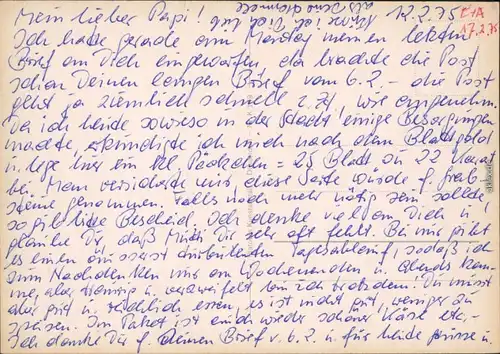 Mein lieber Papi! 12.2.75
E+A
17.2.75
Ich hatte gerade am Montag meinen letzten
Brief an Dich eingeworfen, da brachte die Post
schon Deinen langen Brief vom 6.2. – die Post
geht ja ziemlich schnell z.Zt., wie angenehm.
Da ich heute sowieso in der Stadt einige Besorgungen
machte, erkundigte ich mich nach dem Blattgold
u. lege hier ein kl. Päckchen = 25 Blatt zu 22 Karat
bei. Man versicherte mir, diese Sorte würde f. Grab-
steine genommen. Falls noch mehr nötig sein sollte,
so gib bitte Bescheid. Ich denke viel an Dich u.
glaube Dir, daß Mutti Dir sehr oft fehlt. Bei mir gibt
es einen äusserst Tagesablauf, sodaß ich
zum Nachdenken nur am Wochenenden u. Abends kom-
me, aber traurig u. verzweifelt bin ich trotzdem! Du musst
aber gut u. reichlich essen, es ist nicht gut, weniger zu
speisen. Im Paket ist auch wieder schöner Käse etc.,–
Ich danke Dir f. deinen Brief v. 6.2. u. für heute grüsse u.